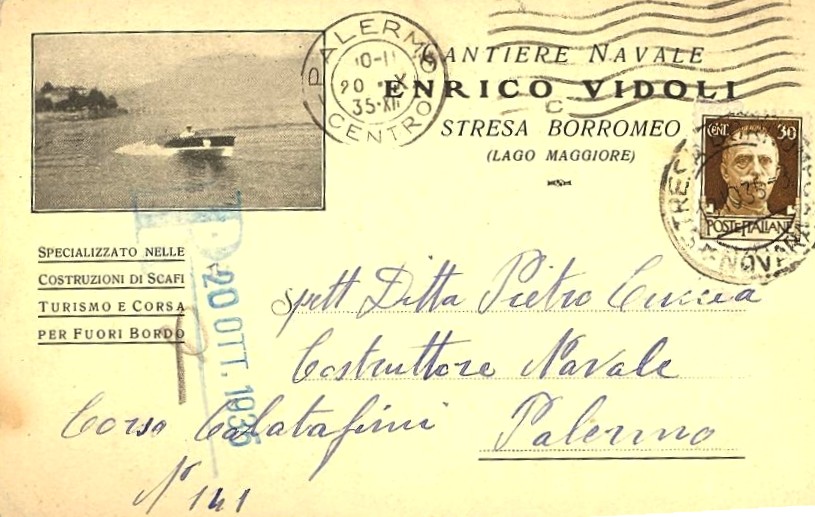 CANTIERE NAVALE
ENRICO VIDOLI
STRESA BORROMEO
(LAGO MAGGIORE)
PALERMO
10-11
20 X
35·XII
CENTRO
CENT. 30
POSTE ITALIANE
NOVARA
SPECIALIZZATO NELLE
COSTRUZIONI DI SCAFI
TURISMO E CORSA
PER FUORI BORDO
20 OTT. 1935
Spett Ditta Pietro Cuccia
Costruttore Navale
Corso Calatafimi Palermo
N° 141